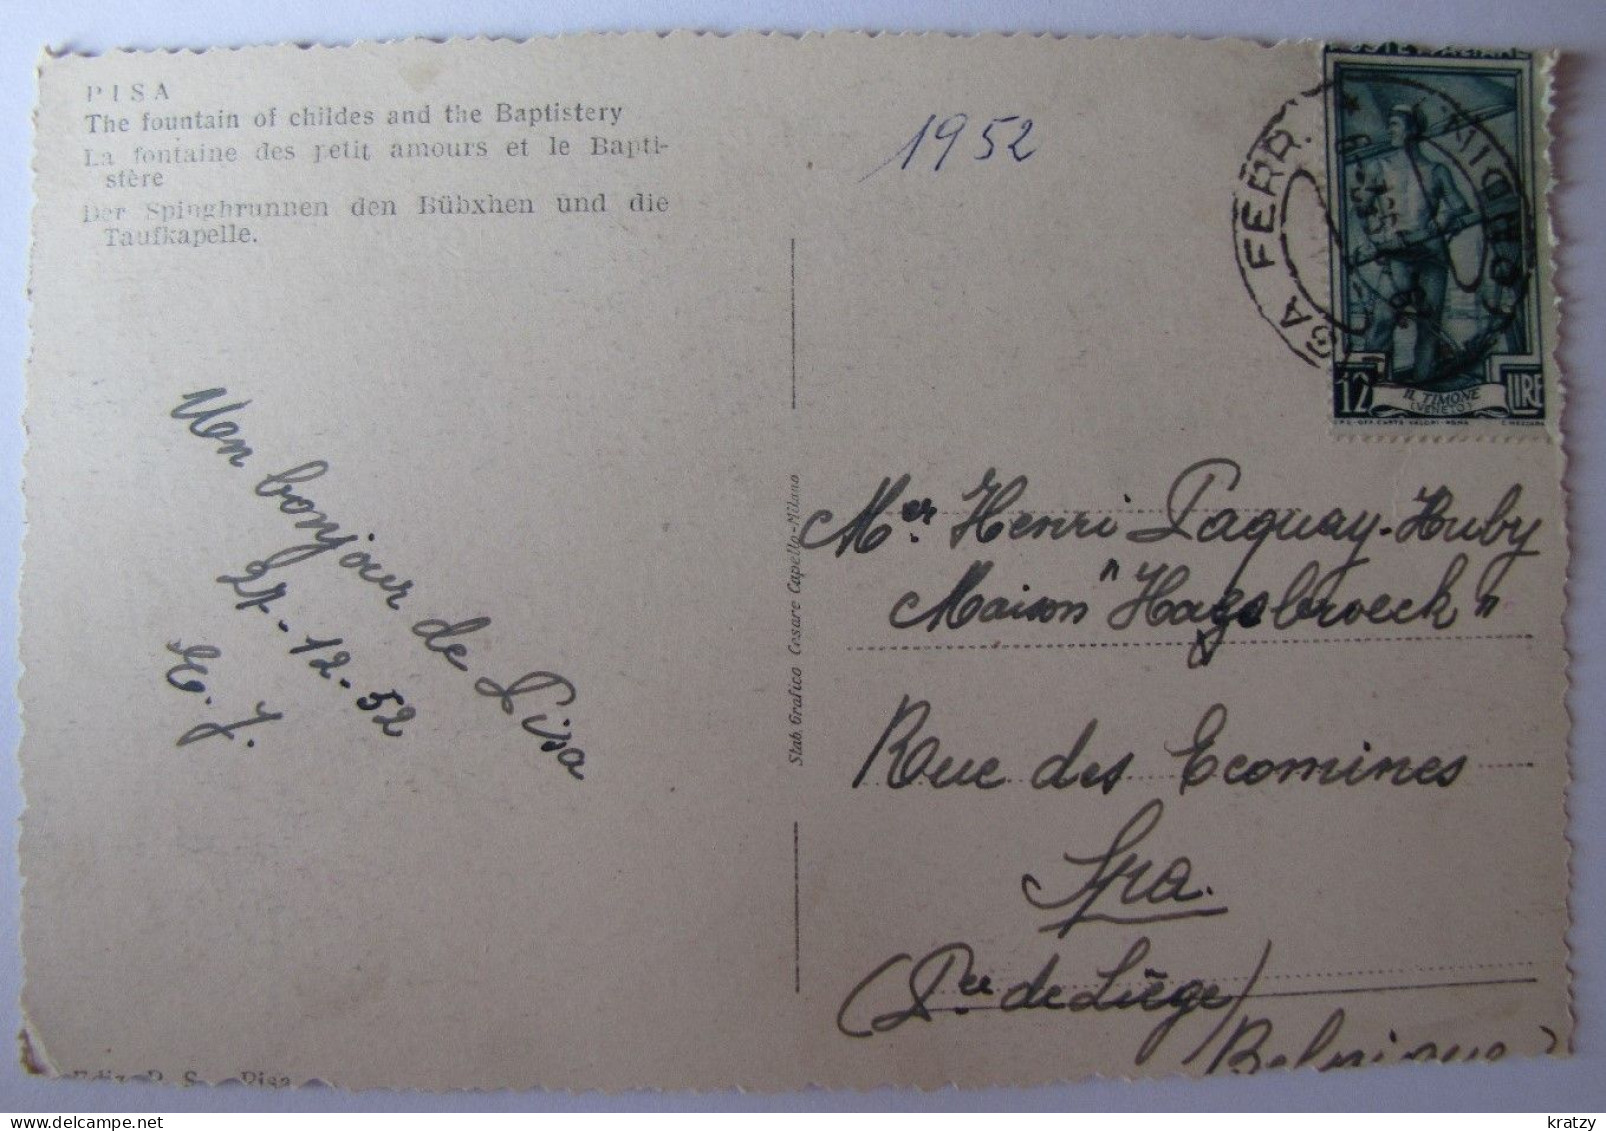 PISA
The fountain of childes and the Baptistery
La fontaine des petit amours et le Bapti-
stère
Der Spingbrunnen den Bübxhen und die
Taufkapelle.
1952
POSTE ITALIANE
FERR.
12 LIRE
IL TIMONE
(VENETO)
Mon bonjour de Pisa
27-12-52
Stab. Grafico Cesare Capello-Milano
Mer Henri Paquay-Huby
Maison "Hagebroeck"
Rue des Ecomines
Spa.
(Pce de Liège)
Belgique
Ediz. P. S. Pisa
kratzy